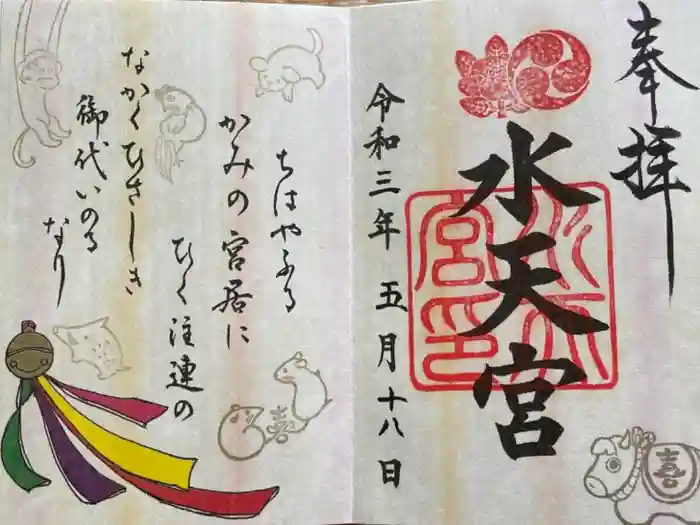 奉拝
水天宮
水天宮印
令和三年 五月十八日
ちはやふる
かみの宮居に
ひく注連の
なかくひさしき
御代いのる
なり
喜
喜